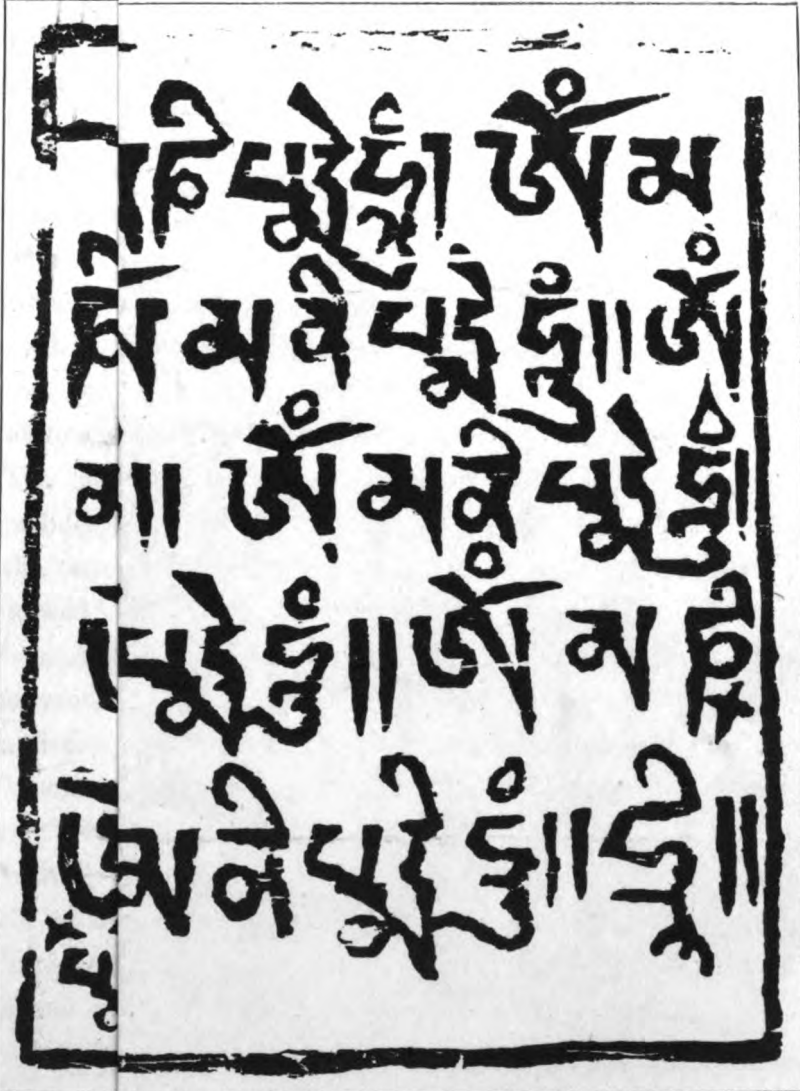 ཎི པདྨེ ཧཱུཾ། ཨོཾ མ
མ ནི པདྨེ ཧུཾ༎ ཨོཾ
མ༎ ཨོཾ མ ནི པདྨེ ཧུཾ།
པདྨེ ཧུཾ༎ ཨོཾ མ ཎི
མ ནི པདྨེ ཧུཾ༎ ཧྲི༎